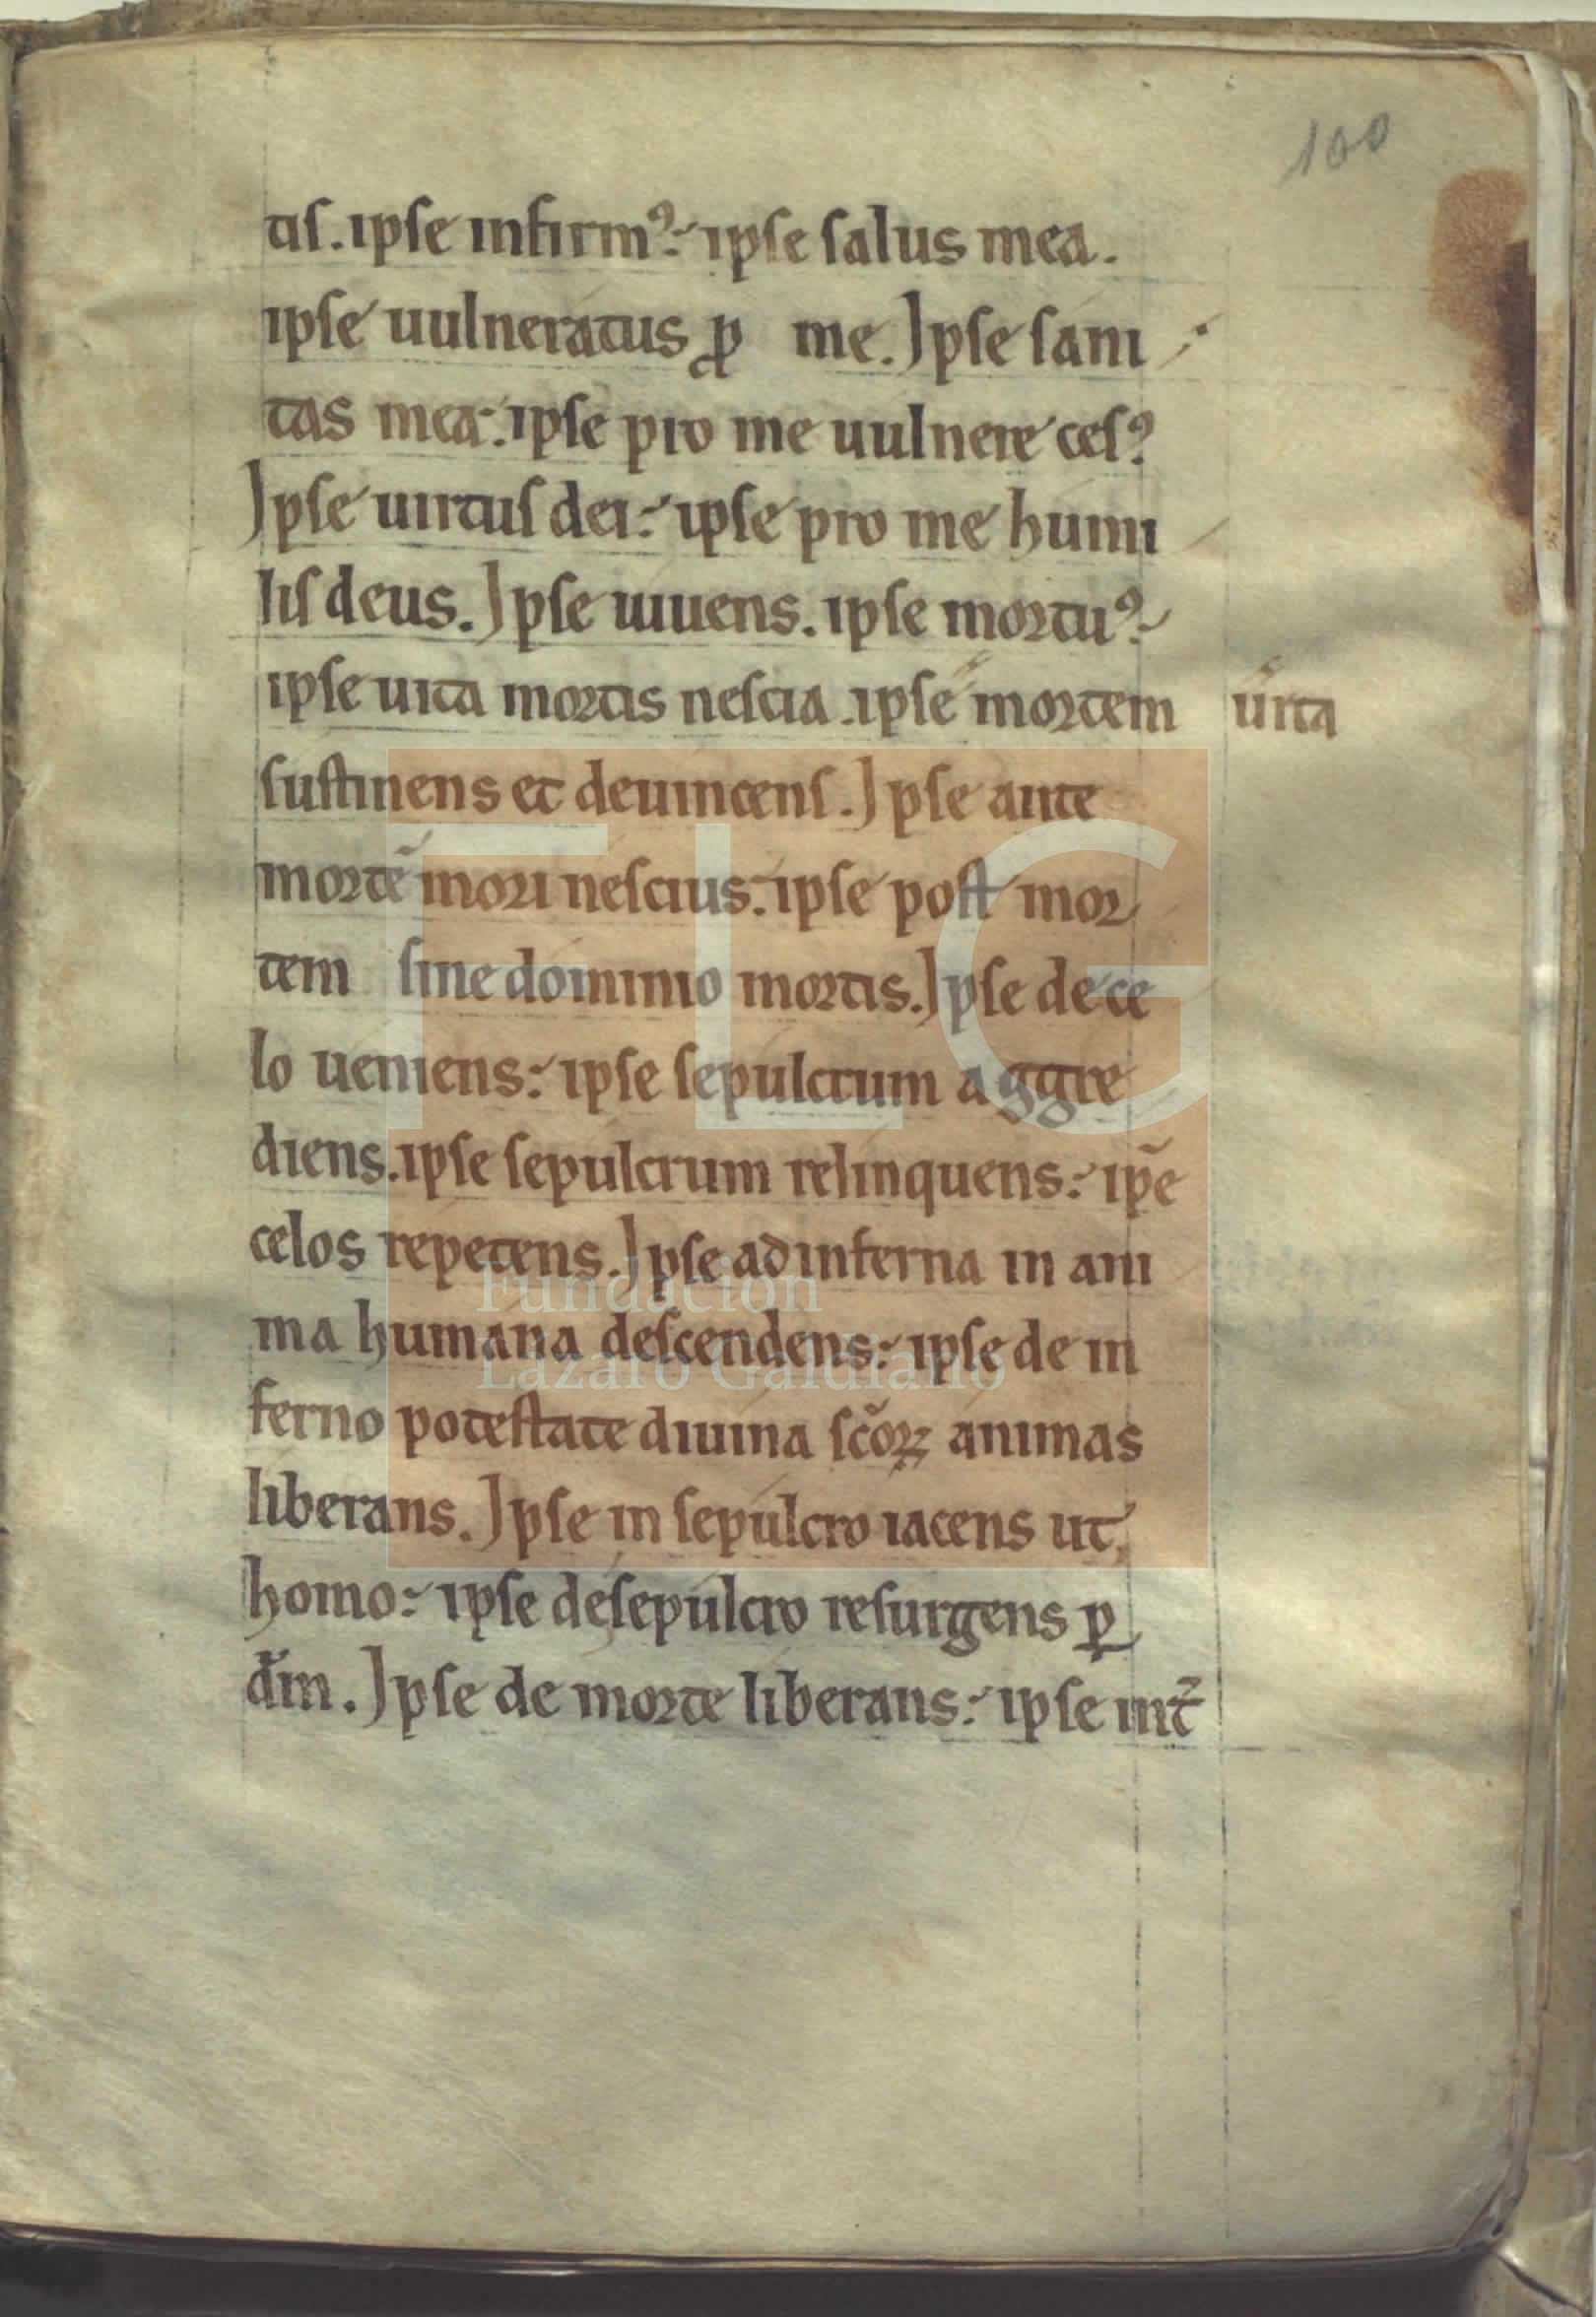 100
tis. ipse infirmꝰ: ipse salus mea.
ipse uulneratus ꝓ me. Ipse sani
tas mea: ipse pro me uulnere cesꝰ
Ipse uirtus dei: ipse pro me humi
lis deus. Ipse uiuens. ipse mortuꝰ:
ipse uita mortis nescia. ipse mortem uita
sustinens et deuincens. Ipse ante
mortē mori nescius: ipse post mor
tem sine dominio mortis. Ipse de ce
lo ueniens: ipse sepulcrum aggre
diens. ipse sepulcrum relinquens: ip̄e
celos repetens. Ipse ad inferna in ani
ma humana descendens: ipse de in
ferno potestate diuina sc̄oꝝ animas
liberans. Ipse in sepulcro iacens ut
homo: ipse de sepulcro resurgens ꝑ
dm̄. Ipse de morte liberans: ipse int̄
FLG
Fundación
Lázaro Galdiano